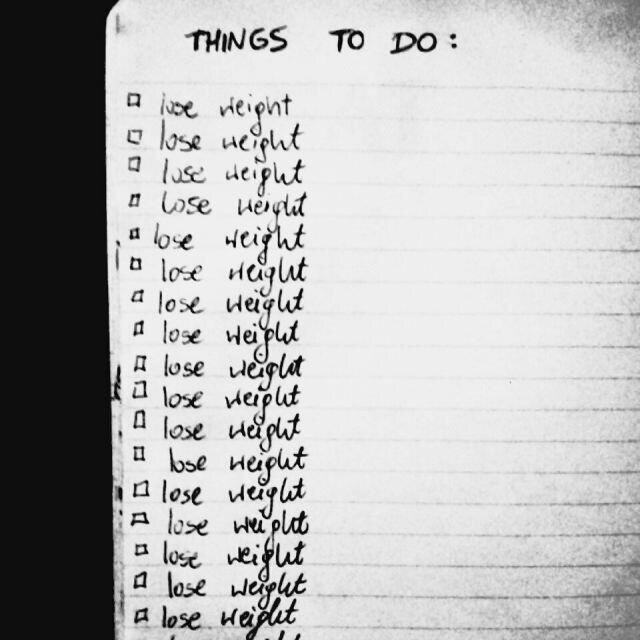 THINGS TO DO:
lose weight
lose weight
lose weight
lose weight
lose weight
lose weight
lose weight
lose weight
lose weight
lose weight
lose weight
lose weight
lose weight
lose weight
lose weight
lose weight
lose weight